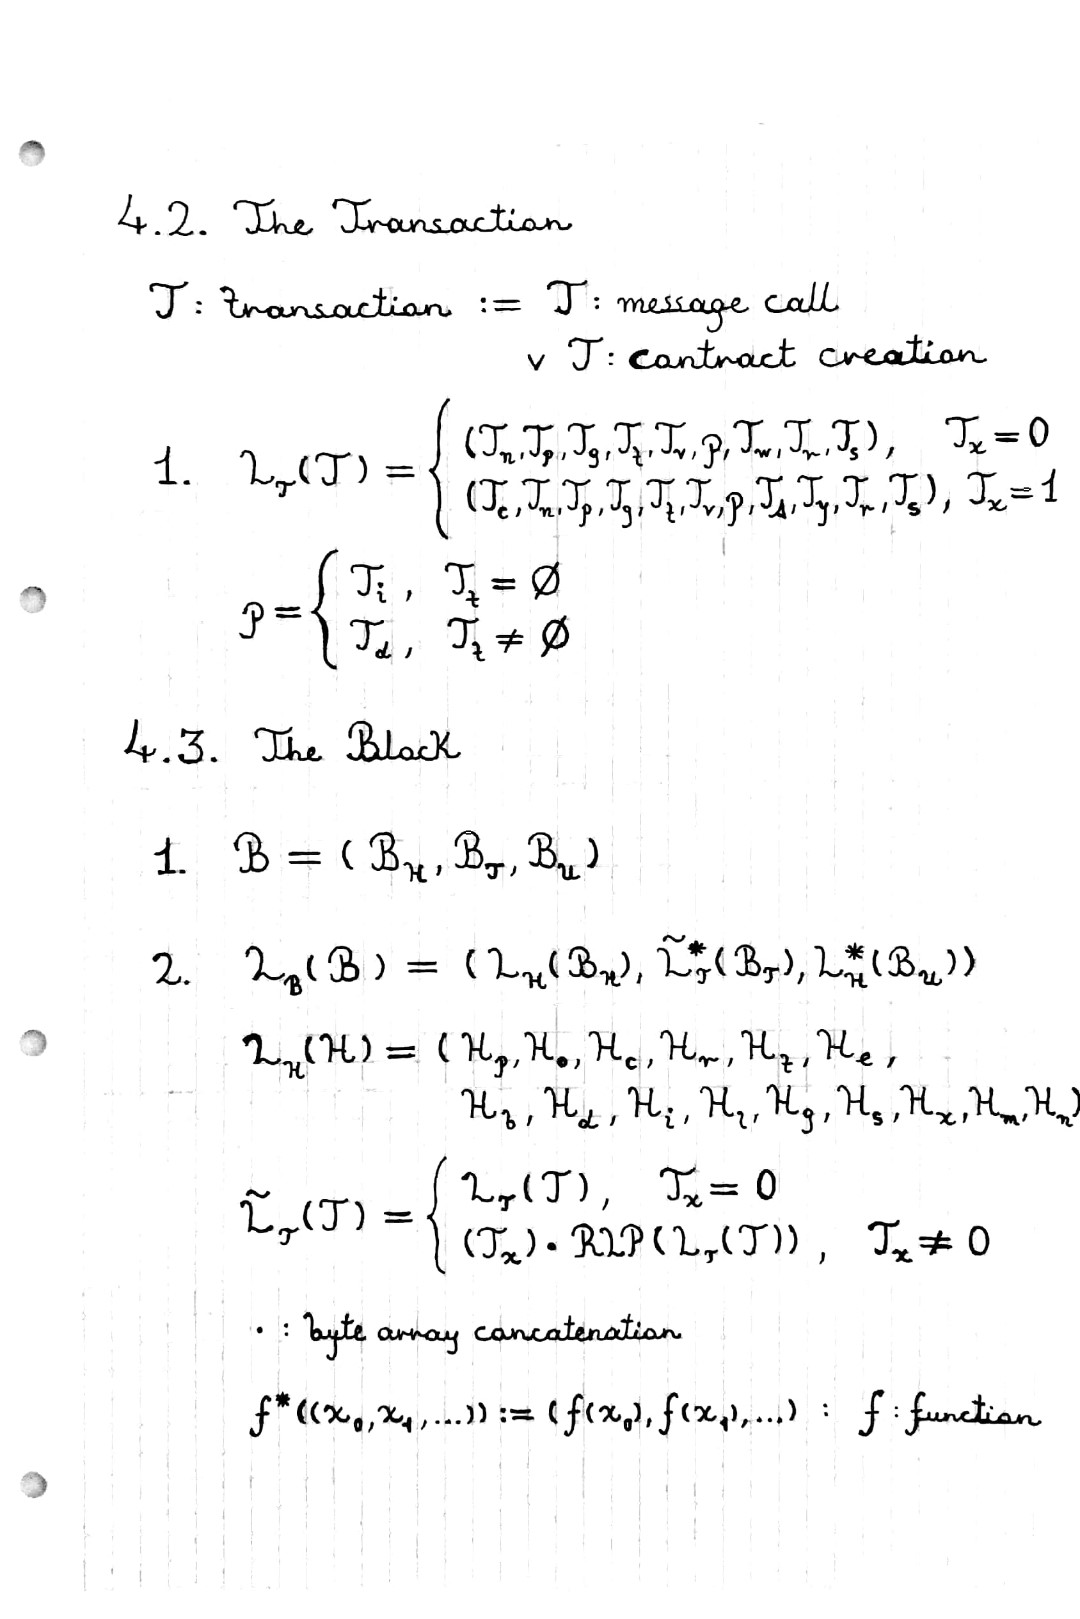 4.2. The Transaction
T: transaction := T: message call
∨ T: contract creation
1. L_T(T) = { (T_n, T_p, T_g, T_t, T_v, p, T_w, T_r, T_s), T_x = 0
(T_c, T_n, T_p, T_g, T_t, T_v, p, T_A, T_y, T_r, T_s), T_x = 1
p = { T_i, T_t = ∅
T_d, T_t ≠ ∅
4.3. The Block
1. B = (B_H, B_T, B_U)
2. L_B(B) = (L_H(B_H), L̃*_T(B_T), L*_H(B_U))
L_H(H) = (H_p, H_o, H_c, H_r, H_t, H_e,
H_b, H_d, H_i, H_l, H_g, H_s, H_x, H_m, H_n)
L̃_T(T) = { L_T(T), T_x = 0
(T_x) · RLP(L_T(T)), T_x ≠ 0
· : byte array concatenation
f*((x_0, x_1, ...)) := (f(x_0), f(x_1), ...) : f : function